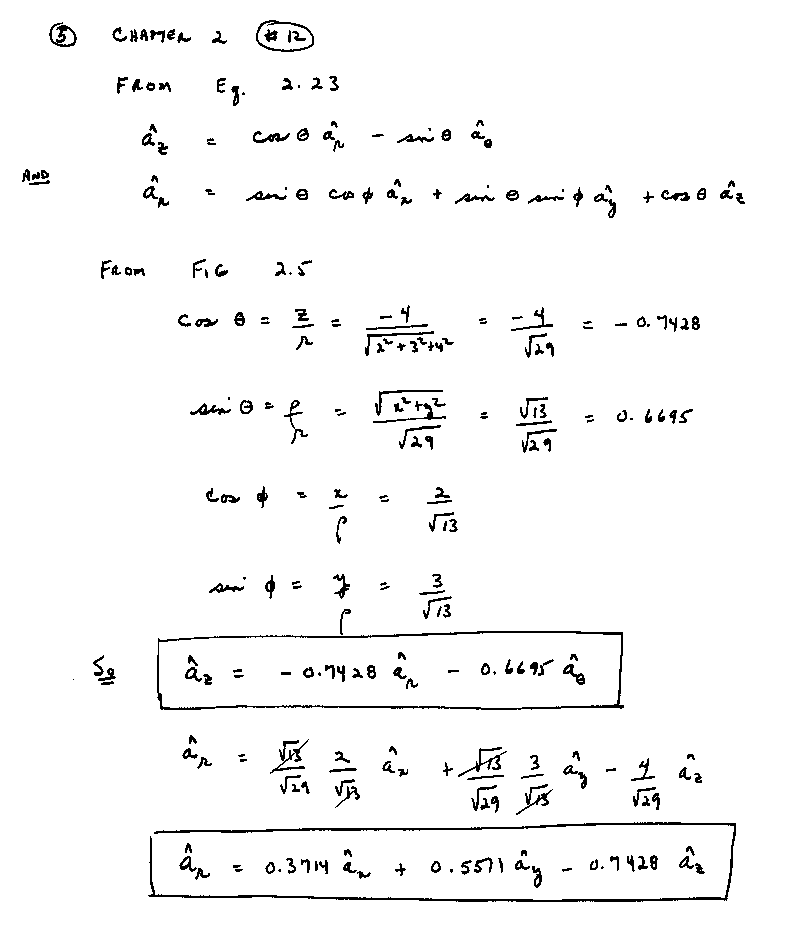 ⑤ CHAPTER 2 #12
FROM Eq. 2.23
â_z = cos θ â_r - sin θ â_θ
AND
â_r = sin θ cos φ â_x + sin θ sin φ â_y + cos θ â_z
FROM FIG 2.5
cos θ = z/r = -4/√(2²+3²+4²) = -4/√29 = -0.7428
sin θ = ρ/r = √(x²+y²)/√29 = √13/√29 = 0.6695
cos φ = x/ρ = 2/√13
sin φ = y/ρ = 3/√13
So â_z = -0.7428 â_r - 0.6695 â_θ
â_r = √13/√29 2/√13 â_x + √13/√29 3/√13 â_y - 4/√29 â_z
â_r = 0.3714 â_x + 0.5571 â_y - 0.7428 â_z